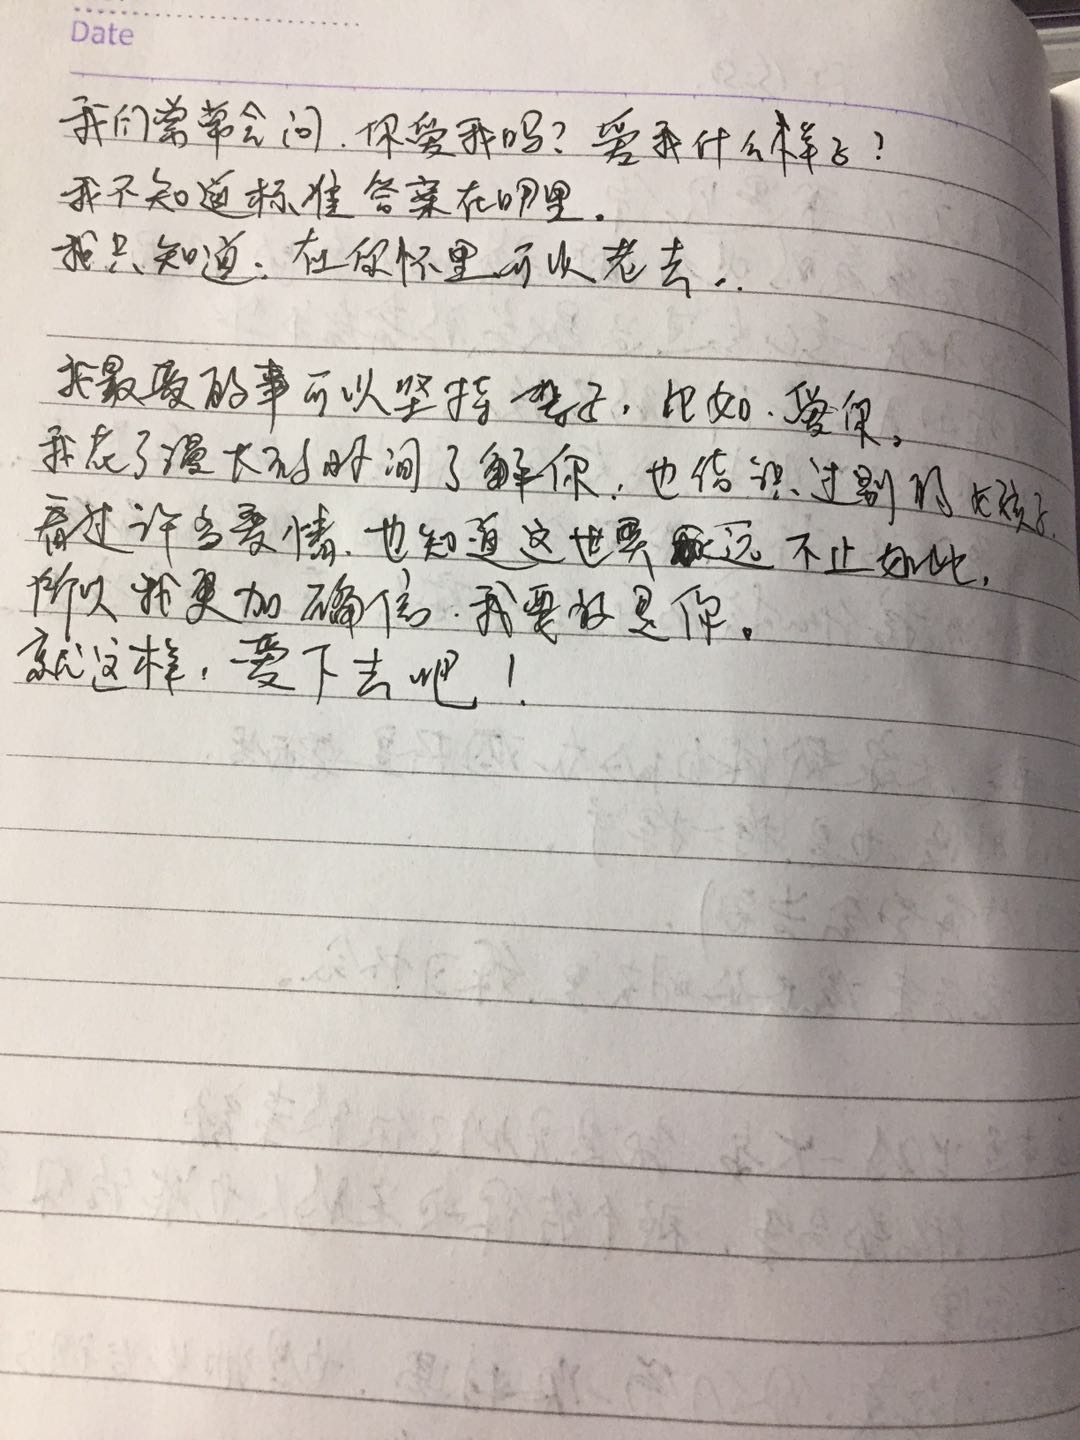 Date
我们常常会问.你爱我吗?爱我什么样子?
我不知道标准答案在哪里.
我只知道:在你怀里可以老去..
我最爱的事可以坚持一辈子,比如.爱你。
我花了漫长的时间了解你,也结识过别的女孩子.
看过许多爱情.也知道这世界永远不止如此,
所以我更加确信.我要的是你。
就这样,爱下去吧!